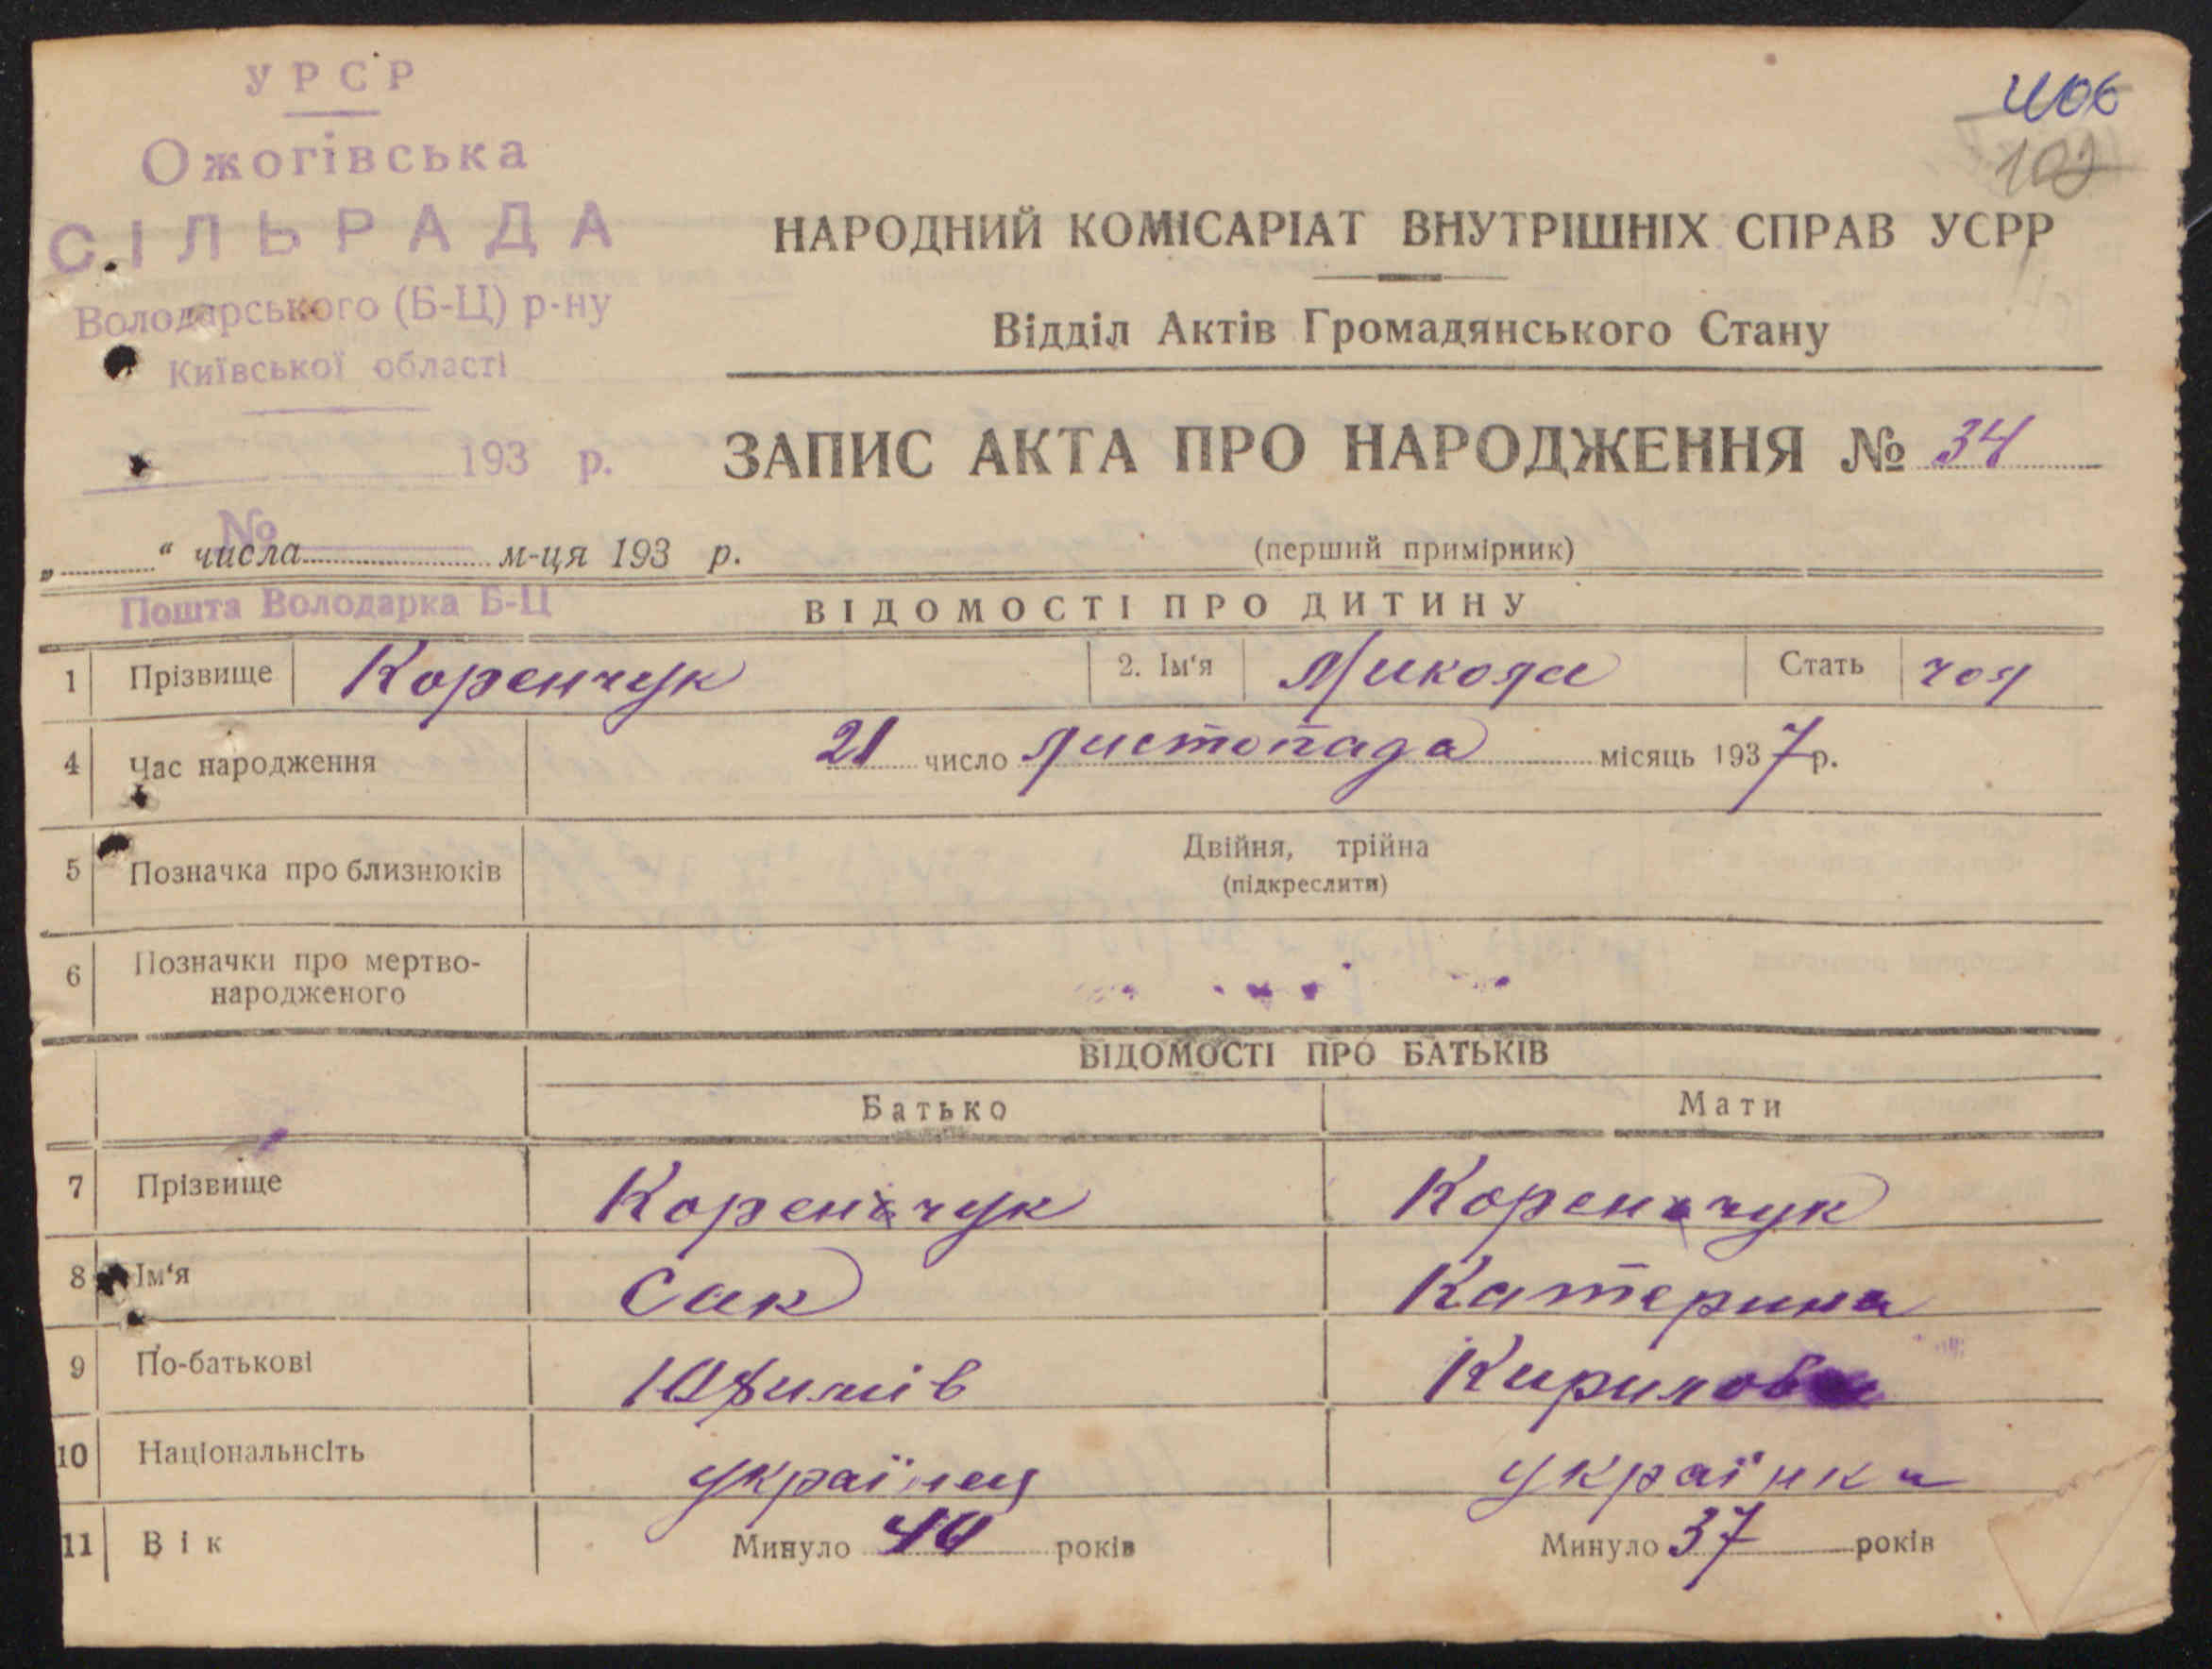 УРСР
Ожогівська
СІЛЬРАДА
Володарського (Б-Ц) р-ну
Київської області
193 р.
№
Пошта Володарка Б-Ц
406
102
НАРОДНИЙ КОМІСАРІАТ ВНУТРІШНІХ СПРАВ УСРР
Відділ Актів Громадянського Стану
ЗАПИС АКТА ПРО НАРОДЖЕННЯ № 34
„ “ числа м-ця 193 р. (перший примірник)
ВІДОМОСТІ ПРО ДИТИНУ
1 Прізвище Коренчук 2. Ім‘я Микола Стать чол
4 Час народження 21 число листопада місяць 1937 р.
5 Позначка про близнюків Двійня, трійна
(підкреслити)
6 Позначки про мертво-
народженого
ВІДОМОСТІ ПРО БАТЬКІВ
Батько Мати
7 Прізвище Коренчук Коренчук
8 Ім‘я Сак Катерина
9 По-батькові Юхимів Кирилова
10 Національнсіть українец українка
11 Вік Минуло 40 років Минуло 37 років